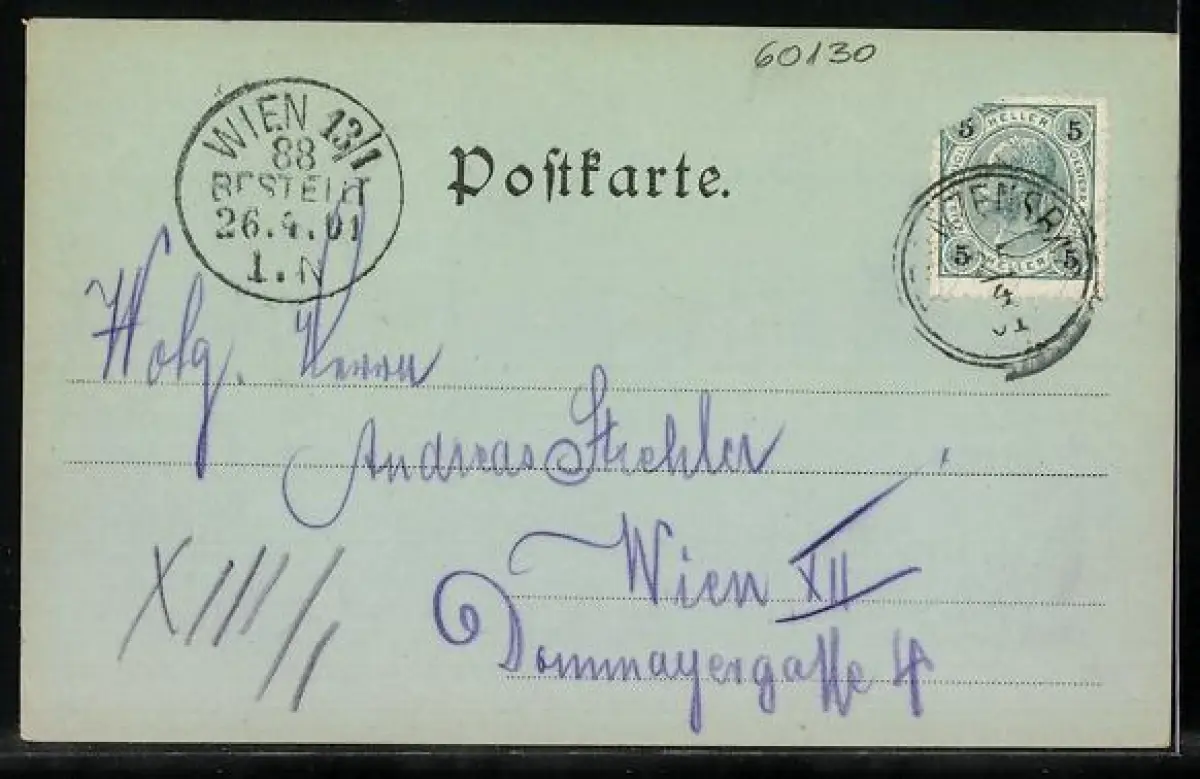 60130
WIEN 13/1
88
BESTELLT
26.4.01
1.N
Postkarte.
5 HELLER 5
5 HELLER 5
4
01
Wolg. Herrn
Andreas Strehler
Wien XII
XIII/1
Dommayergasse 4